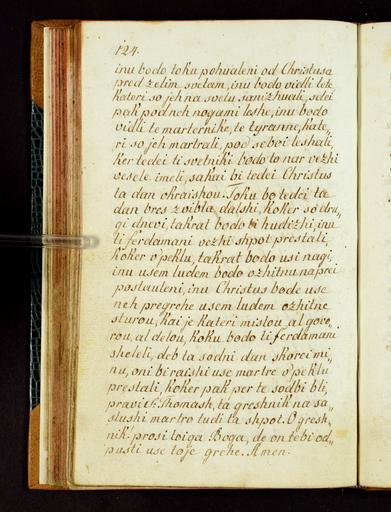 124.
inu bodo toku pohualeni od Christusa
pred zelim svetam, inu bodo vidli tek
kateri so jeh na svetu sanizhuali, sdei
pak pod neh nogami leshe, inu bodo
vidli te marternike, te tyranne, kate„
ri so jeh martrali, pod seboi leshati,
ker tedei ti svetniki bodo to nar vezhi
vesele imeli, sakai bi tedei Christus
ta dan okraishou. Toku bo tedei ta
dan bres zvibla dalshi, koker so dru„
gi dnevi, takrat bodo ti hudizhi, inu
ti ferdamani vezhi shpot prestali,
koker v'peklu, takrat bodo usi nagi,
inu usem ludem bodo ozhitnu naprei
postauleni, inu Christus bode use
neh pregrehe usem ludem ozhitne
sturou, kai je kateri mislou, al govo„
rou, al delou, koku bodo ti ferdamani
sheleli, deb ta sodni dan skorei mi„
nu, oni bi raishi use martre v'peklu
prestali, koker pak per te sodbi bli,
pravi S. Thomash, ta greshnik na sa„
slushi martro tudi ta shpot. O gresh„
nik prosi toiga Boga, de on tebi od„
pusti use toje grehe. Amen.